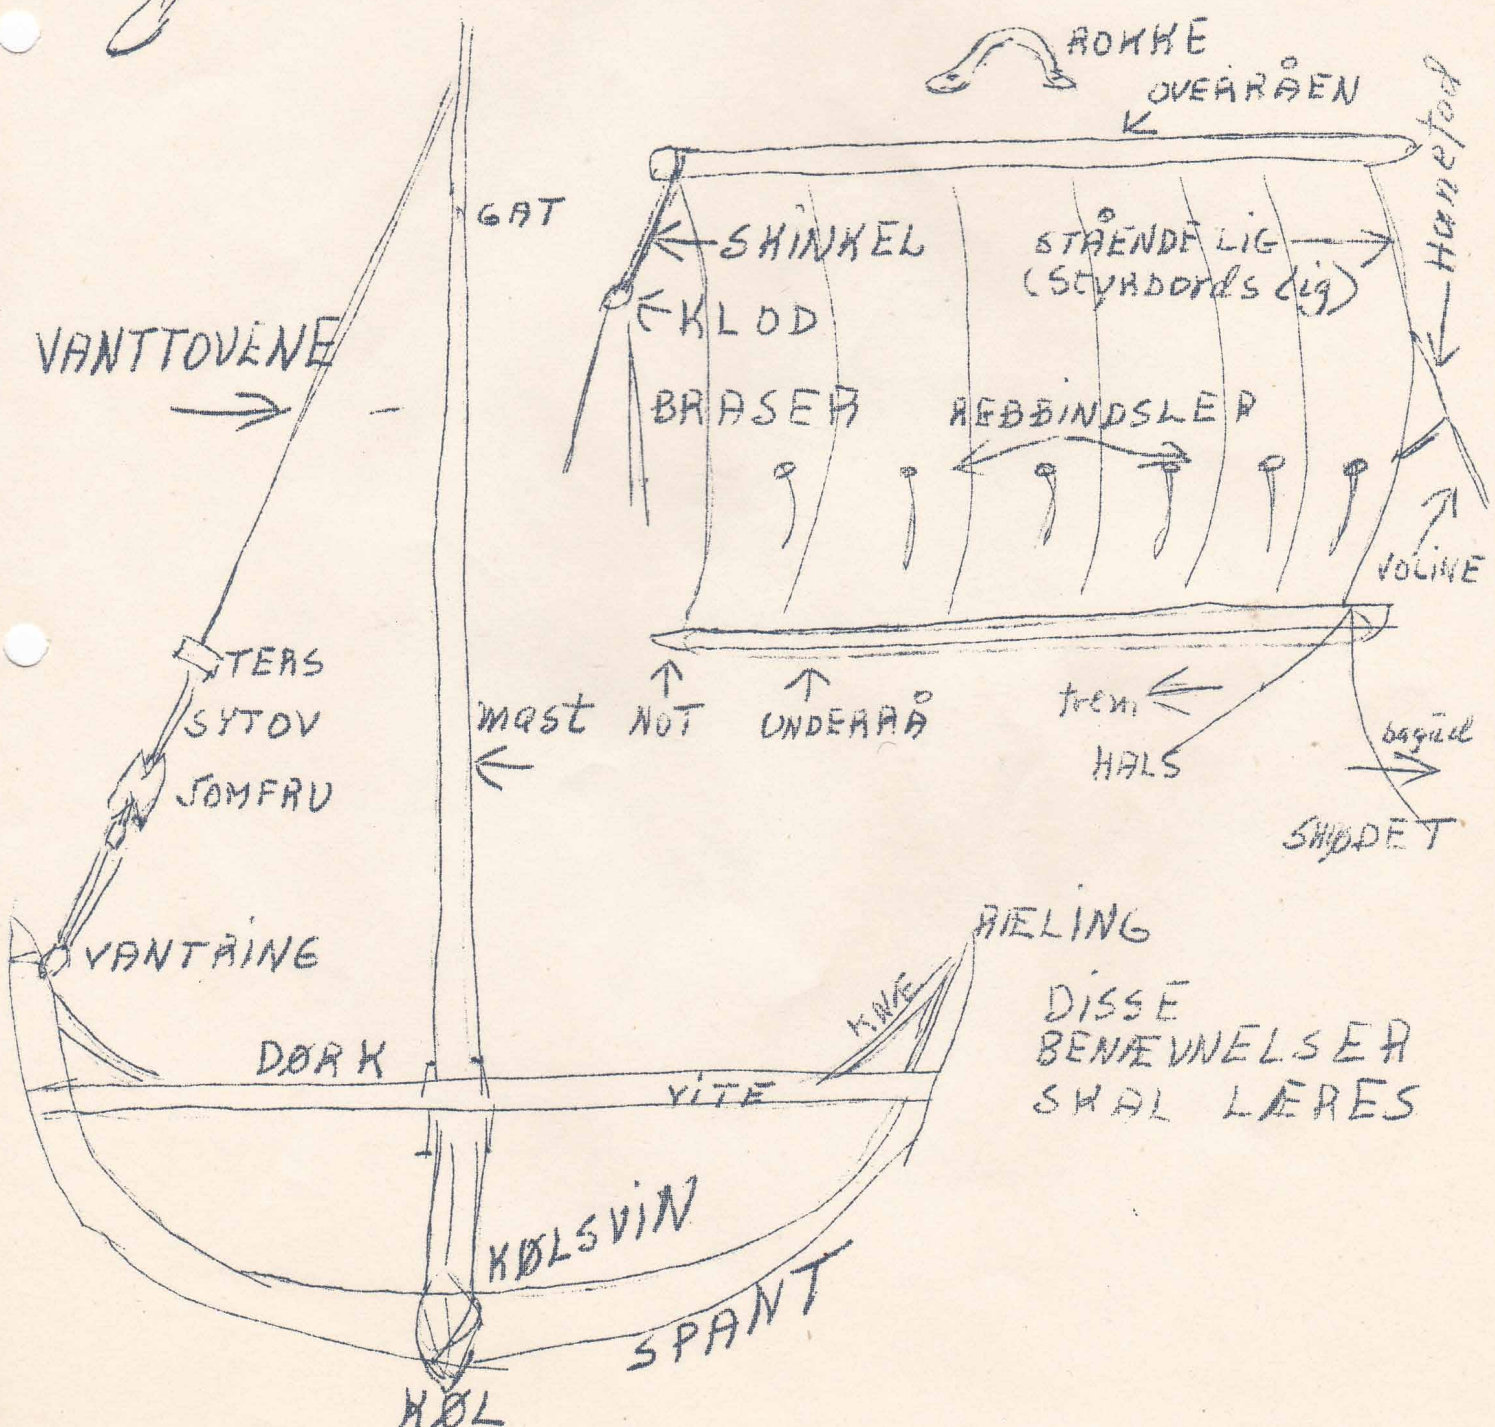 ROKKE
OVERRÅEN
Hanefod
GAT
SKINKEL
STÅENDE LIG
(Styrbords lig)
KLOD
VANTTOVENE
BRASER
REBBINDSLER
VOLINE
TERS
SYTOV
mast
NOT
UNDERRÅ
frem
HALS
bagud
JOMFRU
SKØDET
VANTRING
RÆLING
KNÆ
DISSE
BENÆVNELSER
SKAL LÆRES
DØRK
VITE
KØLSVIN
SPANT
KØL